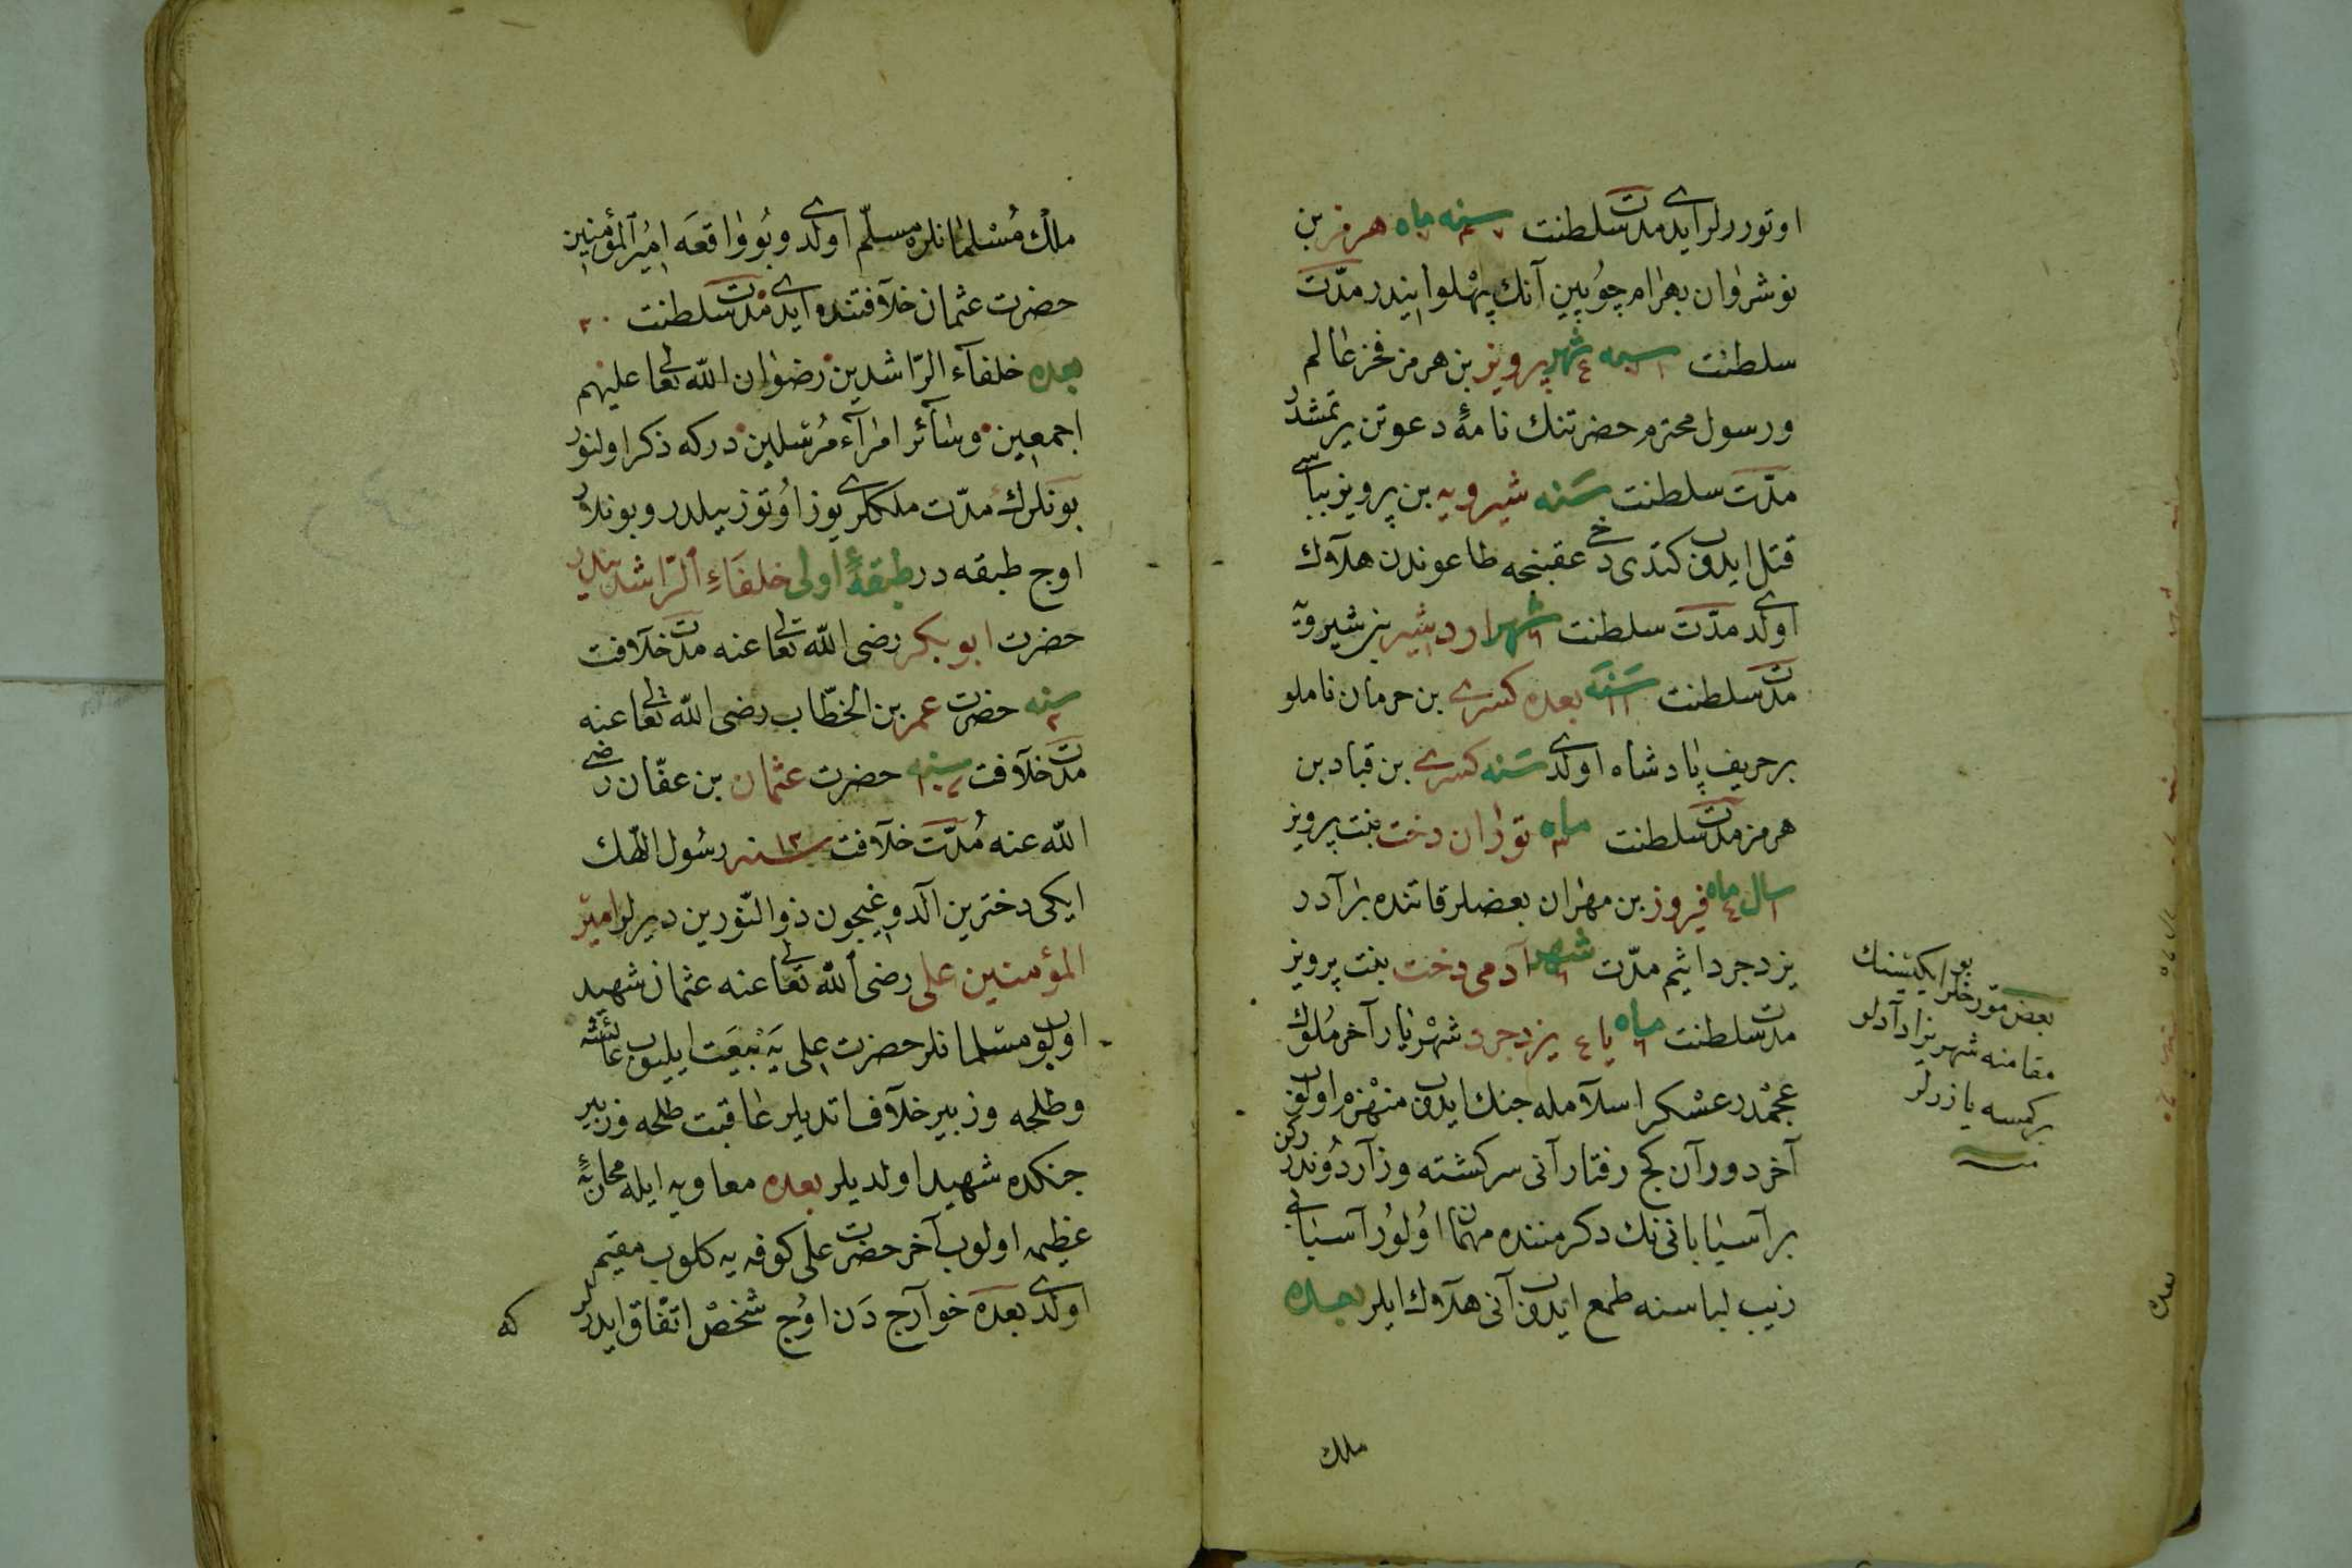 اوتوررلر ایدی مدت سلطنت سنه ماه هرمز بن
نوشروان بهرام چوپین آنك پهلوانیدر مدّت
سلطنت سنه ٤ شهر پرویز بن هرمز فخر عالم
ورسول محترم حضرتنك نامهٔ دعوتن یرتمشدر
مدّت سلطنت سنه شیرویه بن پرویز بباسی
قتل ایدوب کندی دخی عقبنجه طاعوندن هلاوك
اولدی مدّت سلطنت ٦ شهر اردشیر بن شیرویه
مدت سلطنت سنه بعده کسری بن حرمان ناملو
بر حریف پادشاه اولدی سنه کسری بن قباد بن
هرمز مدت سلطنت ماه توران دخت بنت پرویز
١ سال ٤ ماه فیروز بن مهران بعضلر قاتنده برآدر
یزدجرد اثیم مدّت ٦ شهر آدمی دخت بنت پرویز
مدت سلطنت ٦ ماه یا ٤ یزدجرد شهریار آخر ملوك
عجمدر عسکر اسلامله جنك ایدوب منهزم اولوب
آخر دورآن کج رفتار آنی سرکشته وزآر دوندررکن
بر آسیابانی نك دکرمننده مهمان اولور آسیابانی
زیب لباسنه طمع ایدوب آنی هلاوك ایلر بعده
ملك
بو ایکیسنك
بعض مورخلر
مقامنه شهریزاد آدلو
بر کمسه یازرلر
ملك مسلمانلره مسلّم اولدی وبو واقعه امیر المؤمنین
حضرت عثمان خلافتنده ایدی مدت سلطنت ٢٠
بعده خلفآء الرّاشدین رضوان اللّه تعالی علیهم
اجمعین وسآئر امرآء مرسلین درکه ذکر اولنور
بونلرك مدّت ملكلری یوز اوتوز ییلدر وبونلار
اوج طبقه در طبقهٔ اولی خلفاء الرّاشدیندر
حضرت ابو بکر رضی اللّه تعالی عنه مدت خلافت
سنه ٢ حضرت عمر بن الخطّاب رضی اللّه تعالی عنه
مدت خلافت سنه ١٠ حضرت عثمان بن عفّان رضی
اللّه عنه مدّت خلافت ١٢ سنه رسول اللّهك
ایکی دخترین آلدوغیچون ذو النّورین دیرلر امیر
المؤمنین علی رضی اللّه تعالی عنه عثمان شهید
اولوب مسلمانلر حضرت علی یه بیعت ایلیوب عائشه
وطلحه وزبیر خلاف اتدیلر عاقبت طلحه وزبیر
جنکده شهید اولدیلر بعده معاویه ایله محاربهٔ
عظیمه اولوب آخر حضرت علی کوفه یه کلوب مقیم
اولدی بعده خوآرج دن اوج شخص اتفاق ایدرلر
که